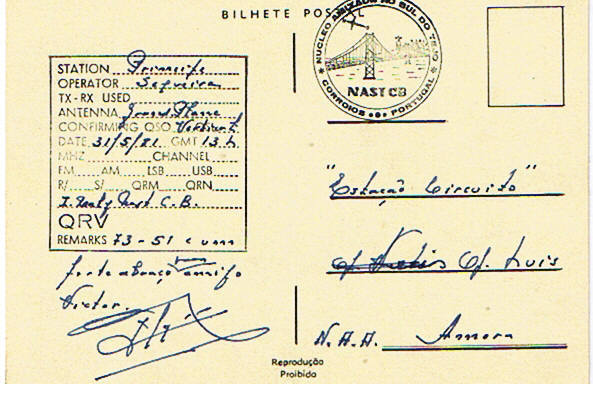 BILHETE POSTAL
NUCLEO AMIZADE NO SUL DO TEJO
NAST CB
CORROIOS ••• PORTUGAL
STATION Principe
OPERATOR Sequeira
TX-RX USED
ANTENNA Ground Plane
CONFIRMING QSO Vertical
DATE 31/5/81 GMT 13 h
MHZ CHANNEL
FM AM LSB USB
R/ S/ QRM QRN
Nast C.B.
QRV
REMARKS 73-51 e uma
forte abraço
Victor.
"Estação Circuito"
Luis
N.A.A. Amora
Reprodução
Proibida